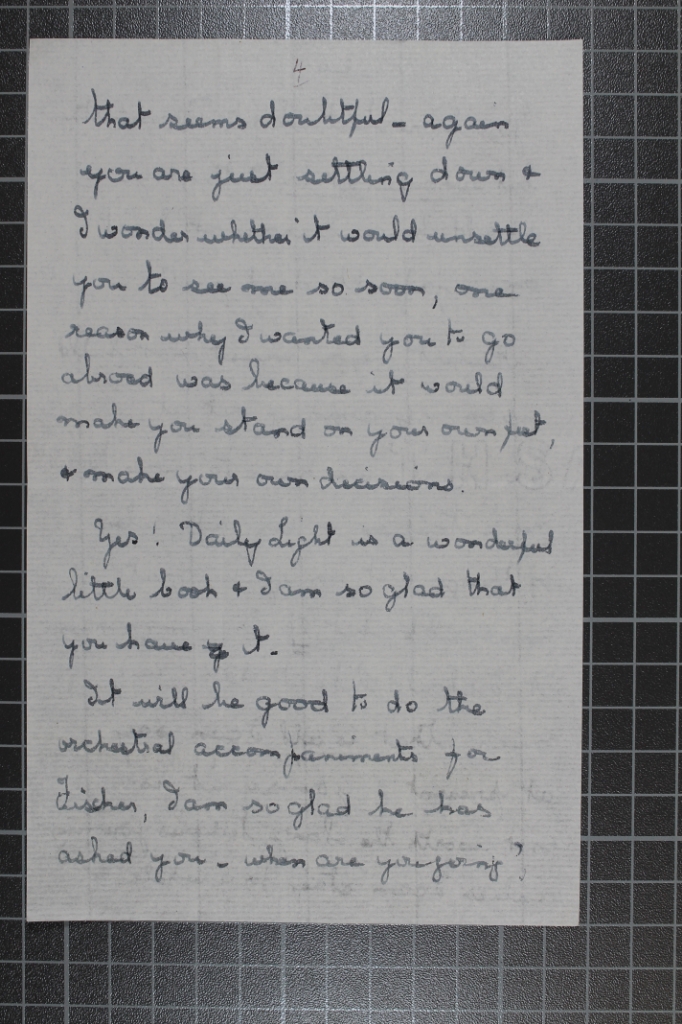 4
that seems doubtful - again
you are just settling down &
I wonder whether it would unsettle
you to see me so soon, one
reason why I wanted you to go
abroad was because it would
make you stand on your own feet,
& make your own decisions.
Yes! Daily Light is a wonderful
little book & I am so glad that
you have it.
It will be good to do the
orchestral accompaniments for
Fischer, I am so glad he has
asked you - when are you going?